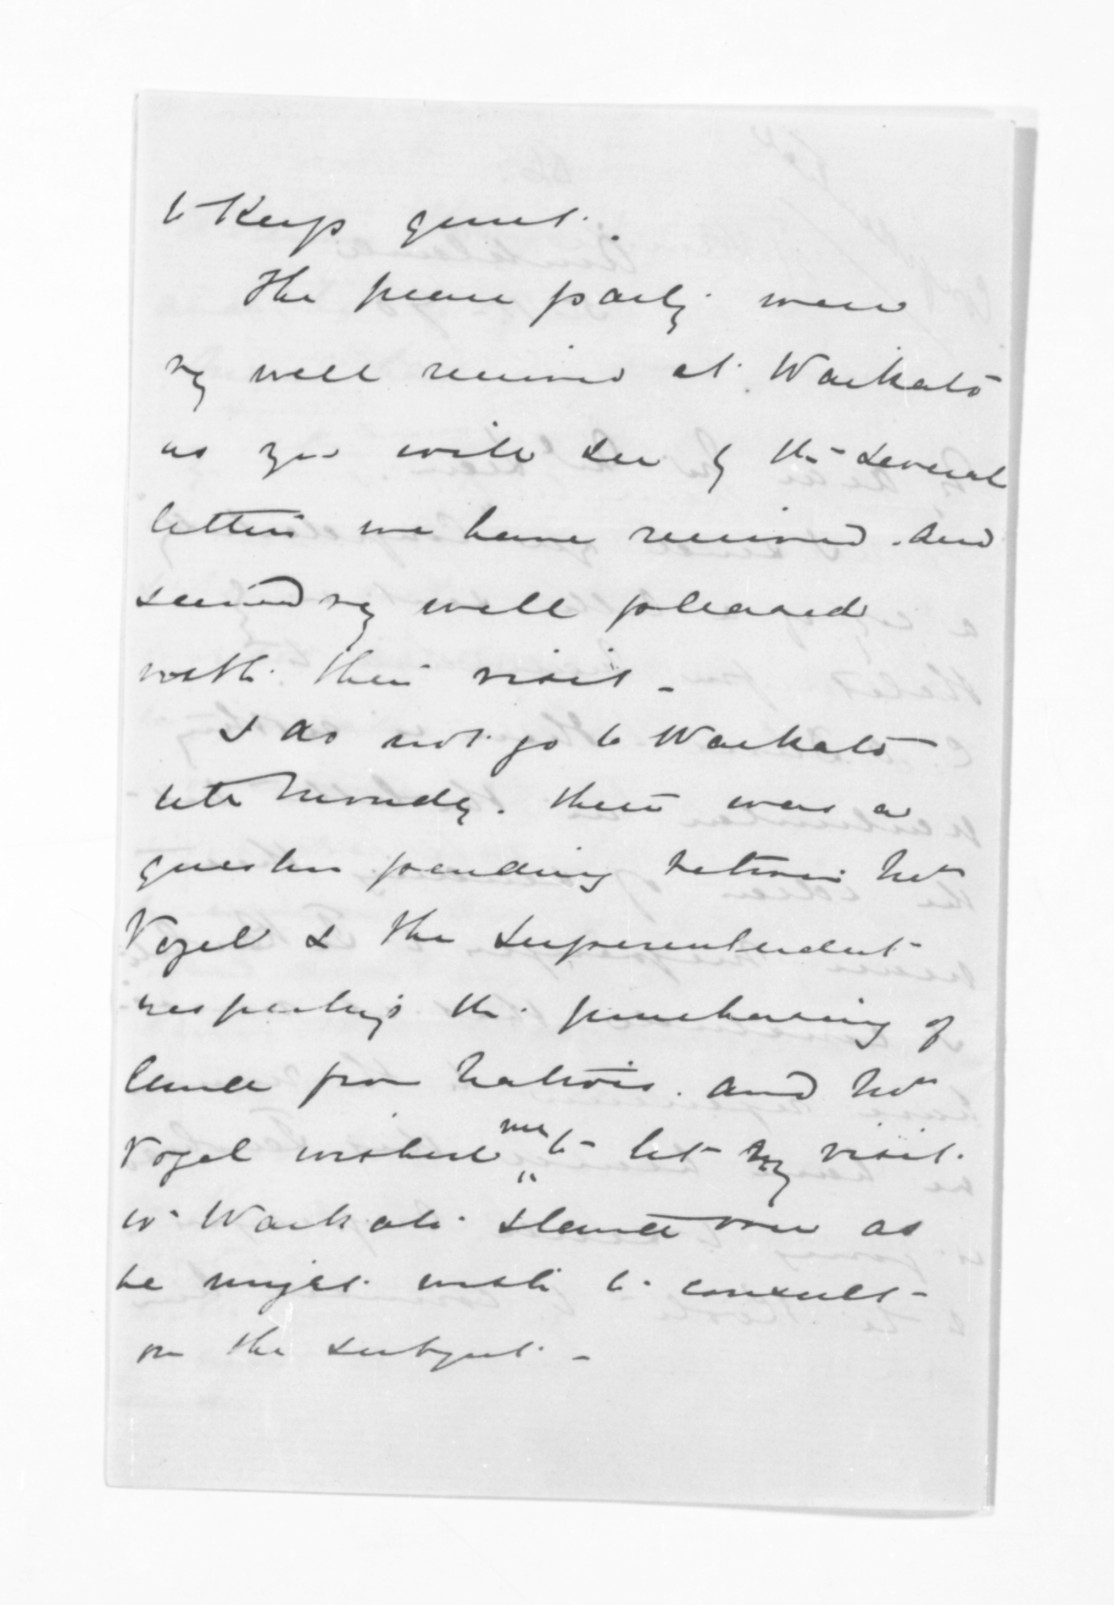 to keep quiet.
The peace party were
vy well received at Waikato
as you will see by the several
letters we have received. and
seemed vy well pleased
with their visit -
I do not go to Waikato
till Monday. there was a
question pending between Mr
Vogel & the Superintendent
respecting the purchasing of
land from Natives. and Mr
Vogel wished me to let my visit
to Waikato stand over as
he might wish to consult
on the subject. -